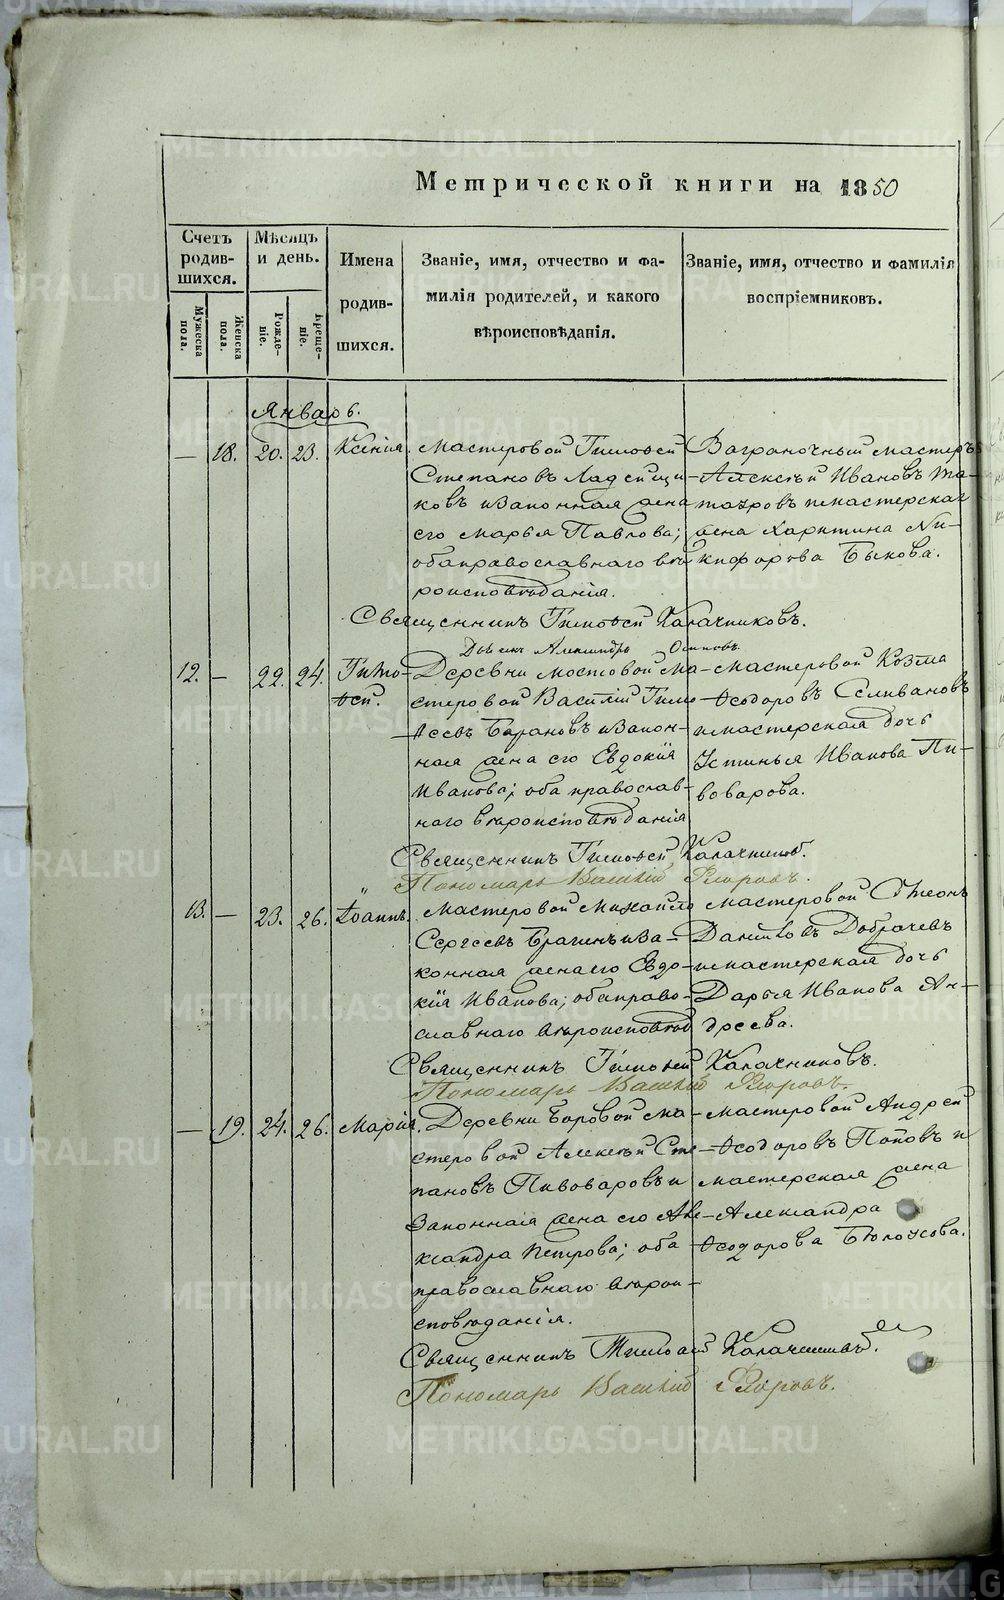 Метрической книги на 1850
Счетъ родив-шихся.
Мѣсяцъ и день.
Имена родив-шихся.
Званіе, имя, отчество и фа-
милія родителей, и какого
вѣроисповѣданія.
Званіе, имя, отчество и фамилія
воспріемниковъ.
Мужеска пола.
Женска пола.
Рожде-ніе.
Креще-ніе.
Январь.
— 18. 20. 23. Ксенія.
Мастеровой Тимофей
Степановъ
ковъ и законная жена
его Марья Павлова;
оба православнаго вѣ
роисповѣданія.
Ваграночный мастеръ
Алексѣй Ивановъ Та-
тауровъ и мастерская
жена Харитина Ни-
кифорова Быкова.
Священникъ Тимофей Калачниковъ.
Александръ Осиповъ.
12. — 22. 24. Тимо-
ѳей.
Деревни Мостовой ма-
стеровой Василій Тимо
ѳеевъ Барановъ и закон-
ная жена его Евдокія
Иванова; оба православ-
наго вѣроисповѣданія
Мастеровой Козма
Ѳеодоровъ Селивановъ
и мастерская дочь
Устинья Иванова Пи-
воварова.
Священникъ Тимофей Калачниковъ.
Пономарь Василій Флоровъ.
13. — 23. 26. Іоаннъ.
Мастеровой Михайло
Сергеевъ Брагинъ и за-
конная жена его Евдо-
кія Иванова; оба право-
славнаго вѣроисповѣд
Мастеровой Симеонъ
Даниловъ Добрачевъ
и мастерская дочь
Дарья Иванова Ан-
дреева.
Священникъ Тимофей Калачниковъ.
Пономарь Василій Флоровъ.
— 19. 24. 26. Марія.
Деревни Боровой ма-
стеровой Алексѣй Сте-
пановъ Пивоваровъ и
законная жена его Але-
ксандра Петрова; оба
православнаго вѣрои-
сповѣданія.
Мастеровой Андрей
Ѳеодоровъ Поповъ и
мастерская жена
Александра
Ѳеодорова Бѣлоусова.
Священникъ Тимофей Калачниковъ.
Пономарь Василій Флоровъ.
METRIKI.GASO-URAL.RU